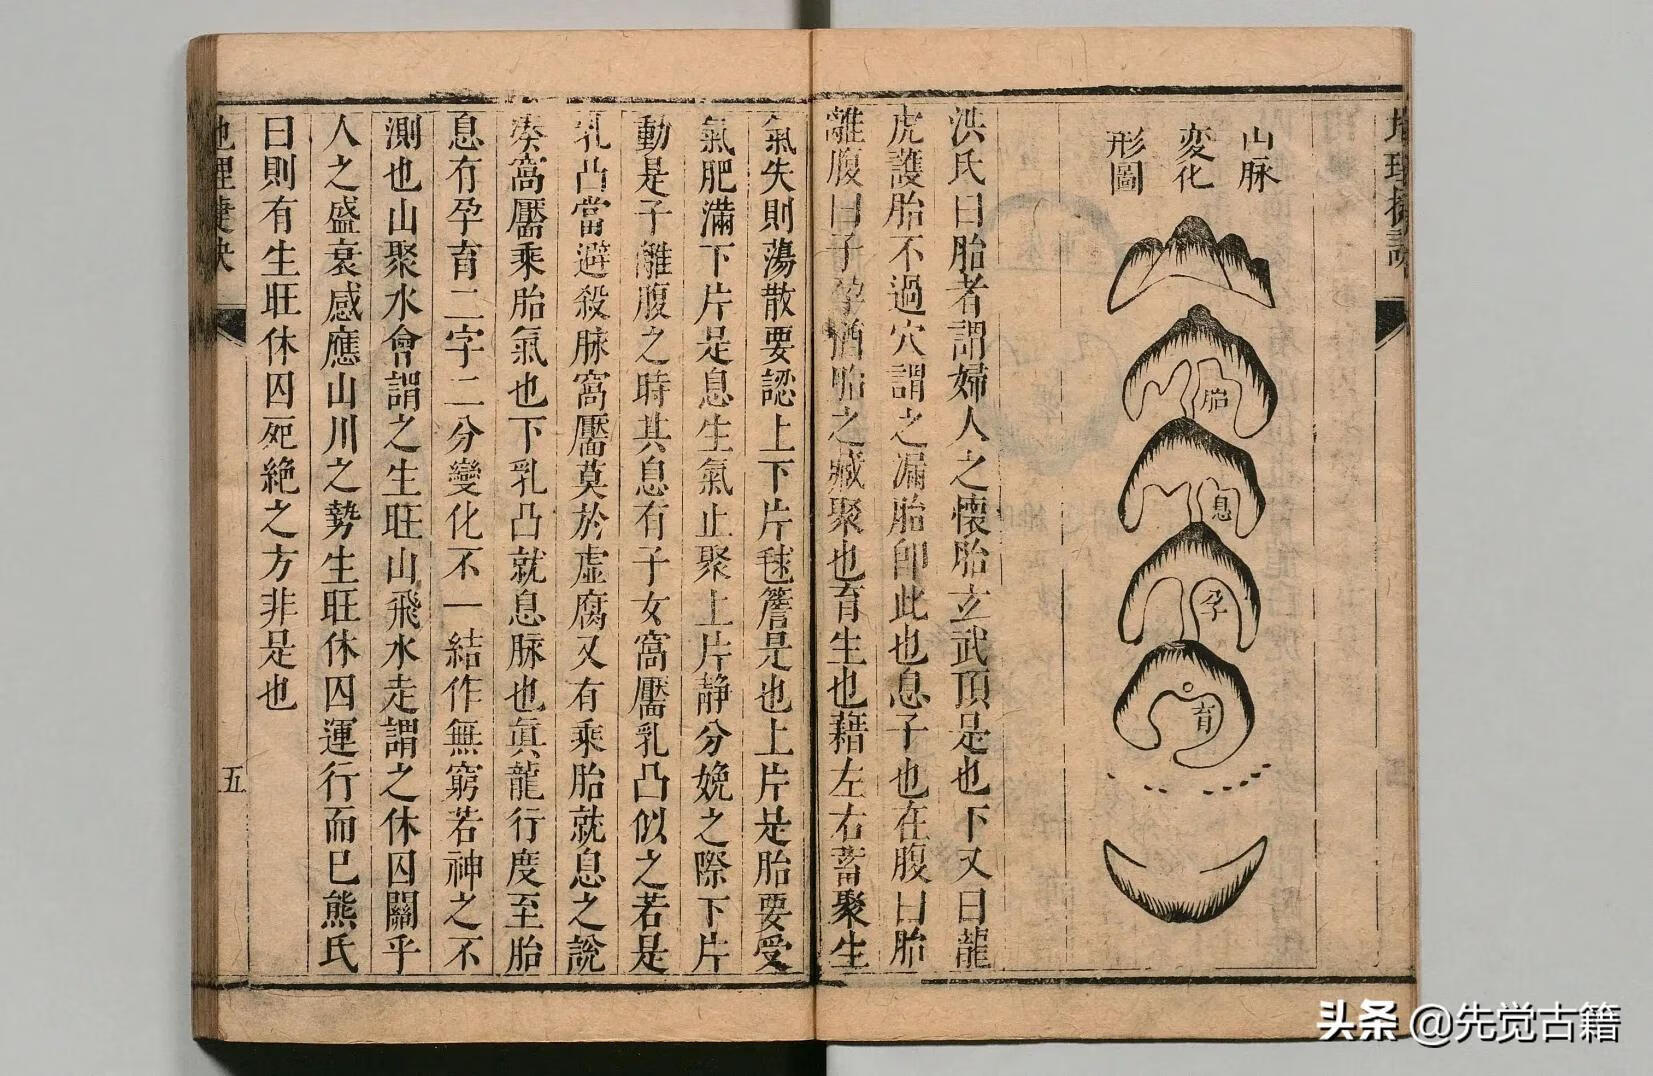 山脉
変化
形圖
胎
息
孕
育
洪氏曰胎者謂婦人之懷胎玄武頂是也下又曰龍
虎護胎不過穴謂之漏胎卽此也息子也在腹曰胎
離腹曰子孕猶胎之藏聚也育生也藉左右蓄聚生
氣失則蕩散要認上下片毬簷是也上片是胎要受
氣肥滿下片是息生氣止聚上片靜分娩之際下片
動是子離腹之時其息有子女窩靨乳凸似之若是
乳凸當避殺脉窩靨莫於虛腐又有乘胎就息之說
湊窩靨乘胎氣也下乳凸就息脉也眞龍行度至胎
息有孕育二字二分變化不一結作無窮若神之不
測也山聚水會謂之生旺山飛水走謂之休囚關乎
人之盛衰感應山川之勢生旺休囚運行而已熊氏
曰則有生旺休囚死絶之方非是也
地理
五
头条 @先觉古籍